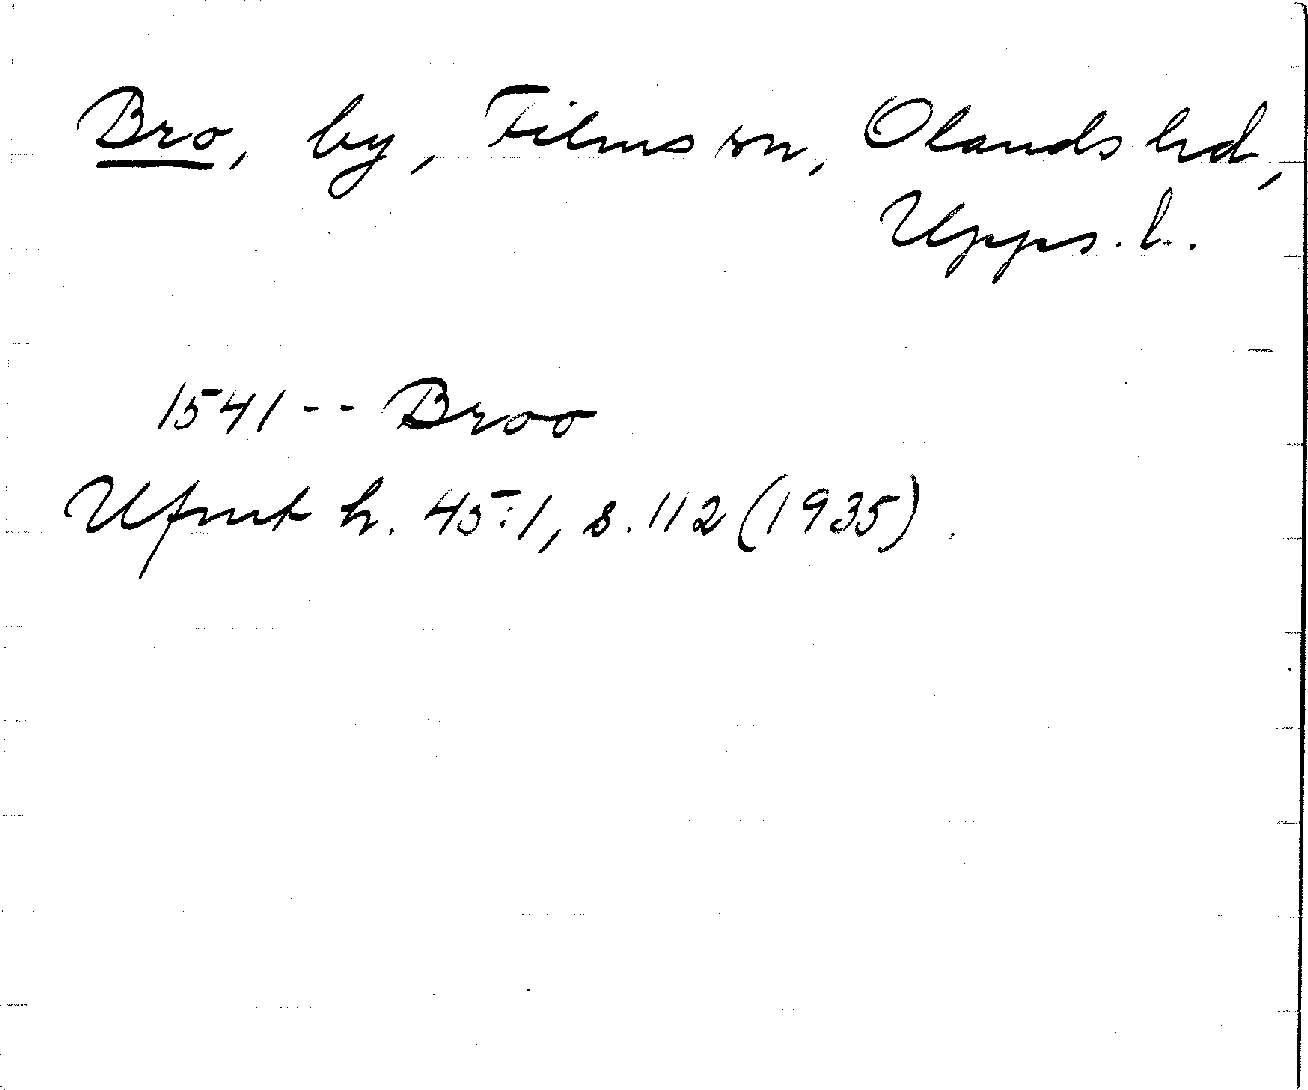 Bro, by, Films sn, Olands hd,
Upps. l.
1541 -- Broo
Ufmt h. 45:1, s. 112 (1935).